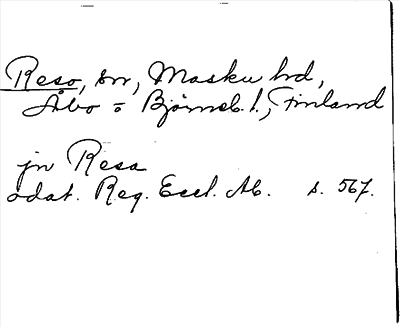 Reso, sn, Masku hd,
Åbo o Björneb. l., Finland
jn Resa
odat. Reg. Eccl. Ab. s. 567.